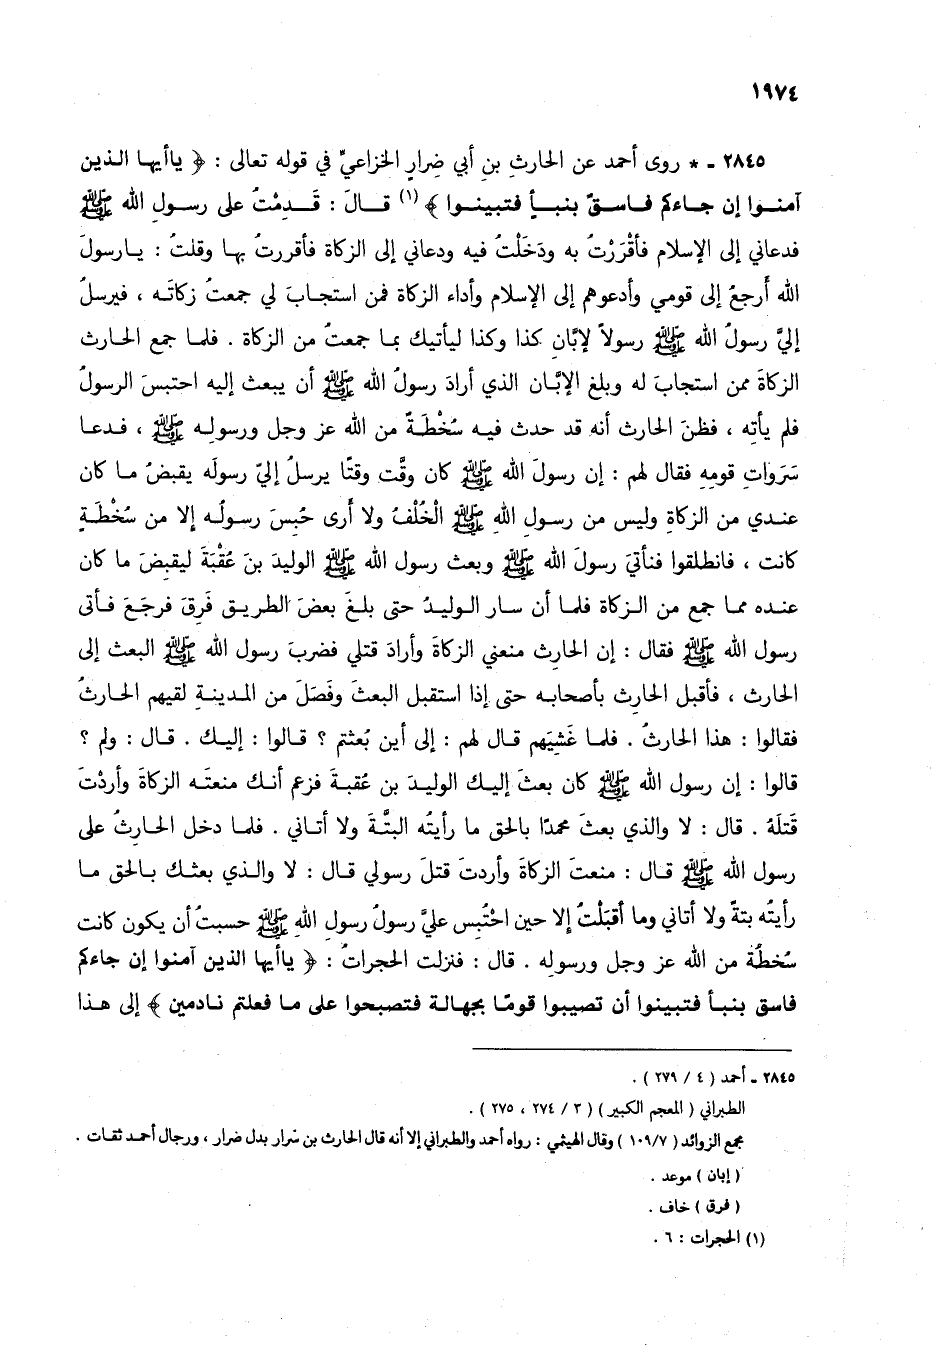 ١٩٧٤
٢٨٤٥ - * روى أحمد عن الحارثِ بنِ أبي ضِرارٍ الخزاعيِّ في قوله تعالى : ﴿ ياأيها الذين
آمنوا إن جاءكم فاسقٌ بنبأ فتبينوا ﴾ (١) قالَ : قَدِمْتُ على رسولِ الله ﷺ
فدعاني إلى الإسلام فأقْرَرْتُ به ودَخَلْتُ فيه ودعاني إلى الزكاة فأقررتُ بها وقلتُ : يارسولَ
الله أَرجعُ إلى قومي وأدعوهم إلى الإسلام وأداء الزكاة فمن استجابَ لي جمعتُ زكاتَه ، فيرسلُ
إليَّ رسولُ الله ﷺ رسولاً لإبَّانِ كذا وكذا ليأتيك بما جمعتُ من الزكاة . فلما جمع الحارث
الزكاةَ ممن استجابَ له وبلغ الإبَّان الذي أرادَ رسولُ الله ﷺ أن يبعث إليه احتبسَ الرسولُ
فلم يأتِه ، فظنَ الحارث أنه قد حدث فيه سُخْطَةٌ من الله عز وجل ورسولِه ﷺ ، فدعا
سَرَواتِ قومِهِ فقال لهم : إن رسولَ الله ﷺ كان وقَّت وقتًا يرسلُ إليّ رسولَه يقبضُ ما كان
عندي من الزكاةِ وليس من رسولِ اللهِ ﷺ الْخُلْفُ ولا أَرى حُبِسَ رسولُه إلا من سُخْطَةٍ
كانت ، فانطلقوا فنأتيَ رسولَ الله ﷺ وبعث رسول الله ﷺ الوليدَ بنَ عُقْبَةَ ليقبضَ ما كان
عنده مما جمع من الزكاة فلما أن سار الوليدُ حتى بلغَ بعضَ الطريق فَرِقَ فرجَعَ فأتى
رسول الله ﷺ فقال : إن الحارث منعني الزكاةَ وأرادَ قتلي فضربَ رسول الله ﷺ البعث إلى
الحارث ، فأقبل الحارث بأصحابه حتى إذا استقبل البعثَ وفَصَلَ من المدينةِ لقيهم الحارثُ
فقالوا : هذا الحارثُ . فلما غَشِيَهم قال لهم : إلى أين بُعثتم ؟ قالوا : إليك . قال : ولم ؟
قالوا : إن رسول الله ﷺ كان بعث إليك الوليدَ بن عُقبةَ فزعم أنك منعتَه الزكاةَ وأردْتَ
قَتلَهُ . قال : لا والذي بعثَ محمدًا بالحق ما رأيتُه البتَّةَ ولا أتاني . فلما دخل الحارثُ على
رسول الله ﷺ قال : منعتَ الزكاةَ وأردتَ قتلَ رسولي قال : لا والذي بعثك بالحق ما
رأيتُه بتةً ولا أتاني وما أقبَلْتُ إلا حين احْتُبِس عليَّ رسولُ رسولِ اللهِ ﷺ حسبتُ أن يكون كانت
سُخطَةُ من الله عز وجل ورسوله . قال : فنزلت الحجراتُ : ﴿ ياأيها الذين آمنوا إن جاءكم
فاسق بنبأ فتبينوا أن تصيبوا قومًا بجهالة فتصبحوا على ما فعلتم نادمين ﴾ إلى هذا
٢٨٤٥ - أحمد ( ٤ / ٢٧٩ ) .
الطبراني ( المعجم الكبير ) ( ٣ / ٢٧٤ ، ٢٧٥ ) .
مجمع الزوائد ( ٧/ ١٠٩ ) وقال الهيثمي : رواه أحمد والطبراني إلا أنه قال الحارث بن سَرار بدل ضرار ، ورجال أحمد ثقات .
( إبان ) موعد .
( فرق ) خاف .
(١) الحجرات : ٦ .